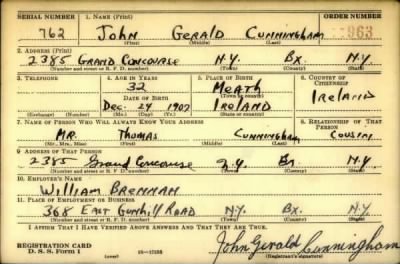 SERIAL NUMBER 1. NAME (Print) ORDER NUMBER
762 John Gerald Cunningham 963
(First) (Middle) (Last)
2. ADDRESS (Print)
2385 Grand Concourse N.Y. Bx. N.Y.
(Number and street or R. F. D. number) (Town) (County) (State)
3. TELEPHONE 4. AGE IN YEARS 5. PLACE OF BIRTH 6. COUNTRY OF CITIZENSHIP
32 Meath Ireland
DATE OF BIRTH (Town or county)
Dec. 24 1907 Ireland
(Exchange) (Number) (Mo.) (Day) (Yr.) (State or country)
7. NAME OF PERSON WHO WILL ALWAYS KNOW YOUR ADDRESS 8. RELATIONSHIP OF THAT PERSON
Mr. Thomas Cunningham Cousin
(Mr., Mrs., Miss) (First) (Middle) (Last)
9. ADDRESS OF THAT PERSON
2385 Grand Concourse N.Y. Bx. N.Y.
(Number and street or R. F. D. number) (Town) (County) (State)
10. EMPLOYER'S NAME
William Brennan
11. PLACE OF EMPLOYMENT OR BUSINESS
368 East Gunhill Road N.Y. Bx. N.Y.
(Number and street or R. F. D. number) (Town) (County) (State)
I AFFIRM THAT I HAVE VERIFIED ABOVE ANSWERS AND THAT THEY ARE TRUE.
REGISTRATION CARD
D. S. S. Form 1 (over) John Gerald Cunningham
(Registrant's signature)